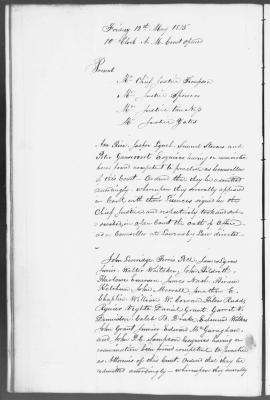 Friday 19th May 1815
10 Clock A.M. Court opened
Present
Mr Chief Justice Thompson
Mr Justice Spencer
Mr Justice Van Ness
Mr Justice Yates
Jasper Lynch, Samuel Stevens and
Peter Gansevoort Esquires having on examination
been found competent to practice as Counsellors
of this Court. Ordered that they be admitted
accordingly - whereupon they severally appeared
in Court with their Licences signed by the
Chief Justice and respectively took and sub-
scribed in open Court the oath of Office
as Counsellors at Law as by Law directed -
John Lynes
Junior, Walter
James Nash, Hiram
Ketchum, John Morrell, Jonathan E.
Chaplin William W.
Daniel Grant, Garret
Caleb B. Drake, Edmund Wilkes
John Grant, Junior Edward McGaraghan,
and John P. Sampson Esquires having on
examination been found competent to practice
as Attornies of this Court. Ordered that they be
admitted accordingly - whereupon they severally